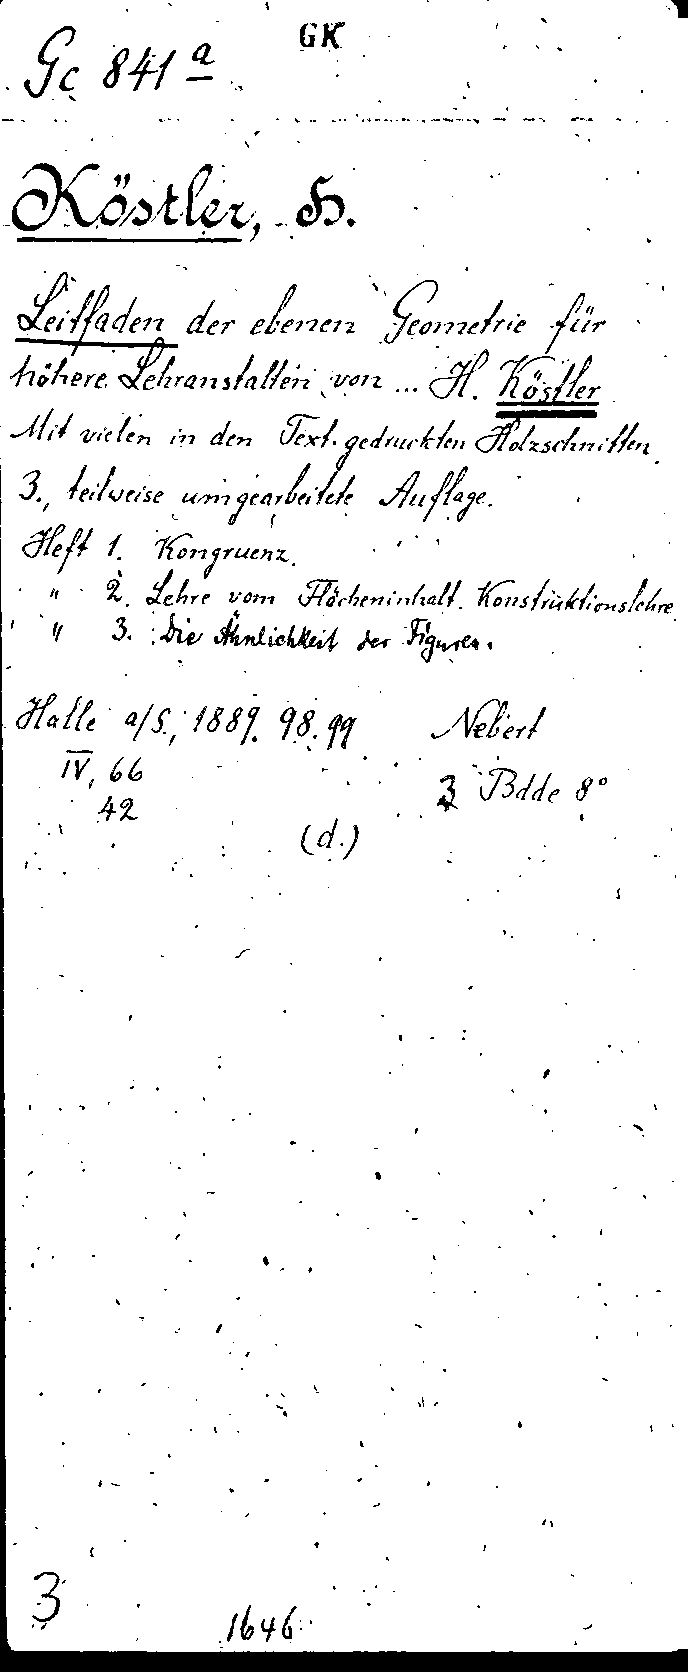 GK
Gc 841 a
Köstler, H.
Leitfaden der ebenen Geometrie für
höhere Lehranstalten von ... H. Köstler
Mit vielen in den Text gedruckten Holzschnitten.
3., teilweise umgearbeitete Auflage.
Heft 1. Kongruenz.
" 2. Lehre vom Flächeninhalt. Konstruktionslehre
" 3. Die Ähnlichkeit der Figuren.
Halle a/S., 1889. 98. 99 Nebert
IV, 66 3 Bdde 8°
42
(d.)
3
1646